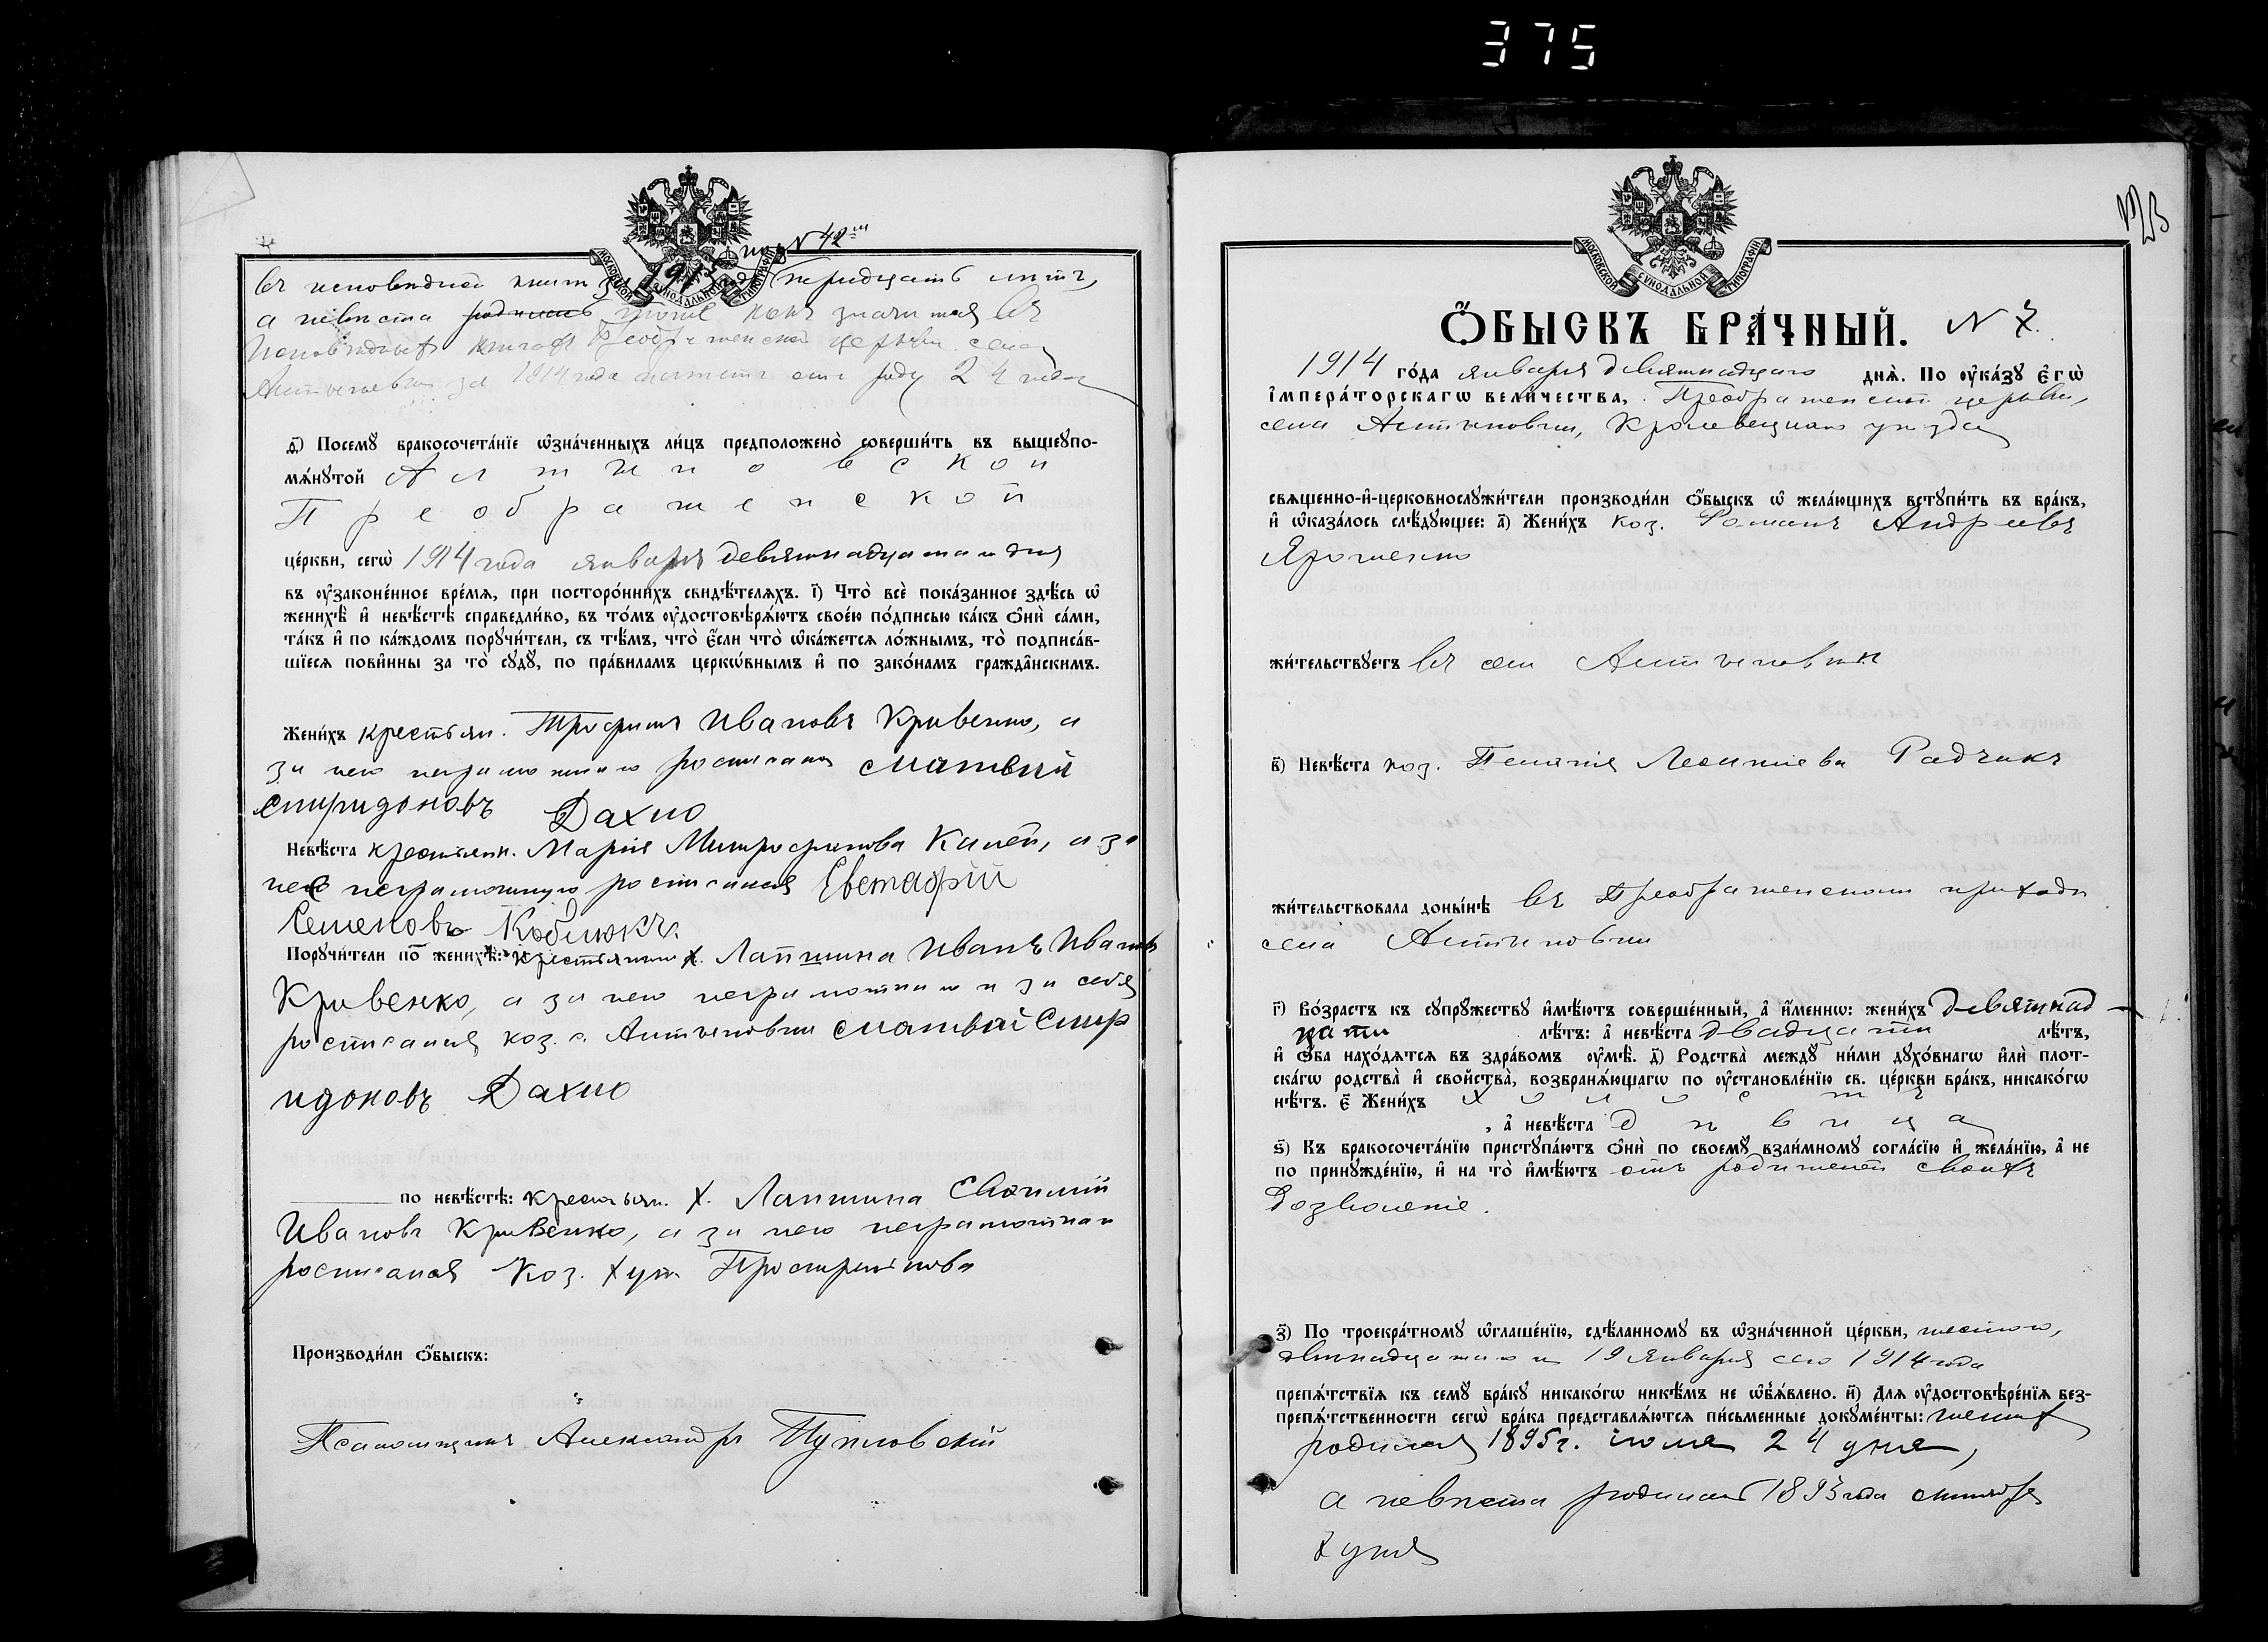 375
подъ N 42
въ исповедной книгѣ за 1913 годъ тридцать лѣтъ,
а невѣста родилась значится въ
Исповѣдныхъ книгахъ Преображенской церкви села
за 1914 года отъ роду 24
МОСКОВСКОЙ СѴНОДАЛЬНОЙ ТИПОГРАФІИ
д҃) Посемꙋ̀ бракосочета́нїе ѡ҆зна́ченныхъ ли́цъ предположено̀ соверши́ть въ вышеꙋпо-
мѧ́нꙋтой Алтыновской
Преображенской
це́ркви, сегѡ̀ 1914 года января девятнадцатаго дня
въ ᲂу҆зако́ненное вре́мѧ, при посторо́ннихъ свидѣ́телѧхъ. і҃) Что̀ всѐ пока́занное здѣ́сь ѡ҆
женихѣ̀ и҆ невѣ́стѣ справедли́во, въ то́мъ ᲂу҆достовѣрѧ́ютъ свое́ю по́дписью ка́къ ѻ҆нѝ са́ми,
та́къ и҆ по ка́ждомъ порꙋчи́тели, съ тѣ́мъ, что̀ є҆́сли что̀ ѡ҆ка́жется ло́жнымъ, то̀ подписа́в-
шїесѧ пови́нны за то̀ сꙋдꙋ̀, по пра́виламъ церко́внымъ и҆ по зако́намъ гражда́нскимъ.
Жени́хъ крестьян. Трофимъ Ивановъ Кривенко, а
за него неграмотнаго росписался Матвѣй
Спиридоновъ Дахно
Невѣ́ста крестьянк. Марія Митрофанова Калей, а за
нее неграмотную росписался Евстафій
Семеновъ Коблюкъ.
Порꙋчи́тели по женихѣ̀: крестьянинъ х. Лапшина Иванъ Ивановъ
Кривенко, а за него неграмотнаго и за себя
росписался коз. с. Алтыновки Матвѣй Спир
идоновъ Дахно
по невѣ́стѣ: крестьян. х. Лапшина Евфимій
Ивановъ Кривенко, а за него неграмотнаго
росписался Коз. хут.
Производи́ли ѻ҆́быскъ:
Псаломщикъ Александръ Пучковскій
МОСКОВСКОЙ СѴНОДАЛЬНОЙ ТИПОГРАФІИ
Ѻ҆́БЫСКЪ БРА́ЧНЫЙ. N 7.
1914 го́да января девятнадцатаго днѧ̀. По ᲂу҆ка́зꙋ Є҆гѡ̀
і҆мпера́торскагѡ вели́чества, Преображенской церкви,
села Алтыновки, Кролевецкаго уѣзда
свѧще́нно-и҆-церковнослꙋжи́тели производи́ли ѻ҆́быскъ ѡ҆ жела́ющихъ встꙋпи́ть въ бра́къ,
и҆ ѡ҆каза́лось слѣ́дꙋющее: а҃) Жени́хъ коз. Романъ Андреевъ
Ярошенко
жи́тельствꙋетъ въ селѣ Алтыновкѣ
в҃) Невѣ́ста коз. Пелагія Леонтіева Радчикъ
жи́тельствовала доны́нѣ въ Преображенскомъ приходѣ
села Алтыновки
г҃) Во́зрастъ къ сꙋпрꙋ́жествꙋ и҆мѣ́ютъ соверше́нный, а҆ и҆́меннѡ: жени́хъ девятнад-
цати лѣ́тъ: а҆ невѣ́ста двадцати лѣ́тъ,
и҆ ѻ҆́ба нахо́дѧтсѧ въ здра́вомъ ᲂу҆мѣ̀. д҃) Родства̀ междꙋ̀ ни́ми дꙋхо́внагѡ и҆лѝ плот-
ска́гѡ родства̀ и҆ сво́йства̀, возбранѧ́ющагѡ по ᲂу҆становле́нїю св. це́ркви бра́къ, никако́гѡ
нѣ́тъ. є҃) Жени́хъ холостъ
, а҆ невѣ́ста дѣвица
ѕ҃) Къ бракосочета́нїю пристꙋпа́ютъ ѻ҆нѝ по своемꙋ̀ взаи́мномꙋ согла́сїю и҆ жела́нїю, а҆ не
по принꙋжде́нїю, и҆ на то̀ и҆мѣ́ютъ отъ родителей своихъ
дозволеніе.
з҃) По троекра́тномꙋ ѡ҆глаше́нїю, сдѣ́ланномꙋ въ ѡ҆зна́ченной це́ркви, шестого,
двѣнадцатаго и 19 Января сего 1914 года
препѧ́тствїѧ къ семꙋ̀ бра́кꙋ никако́гѡ никѣ́мъ не ѡ҆б̾ѧ́влено. и҃) Длѧ ᲂу҆достовѣре́нїѧ без-
препѧ́тственности сегѡ̀ бра́ка представлѧ́ютсѧ пи́сьменные докꙋме́нты: женихъ
родился 1895 г. іюля 24 дня,
а невѣста родилась 1893 года октября
7 дня